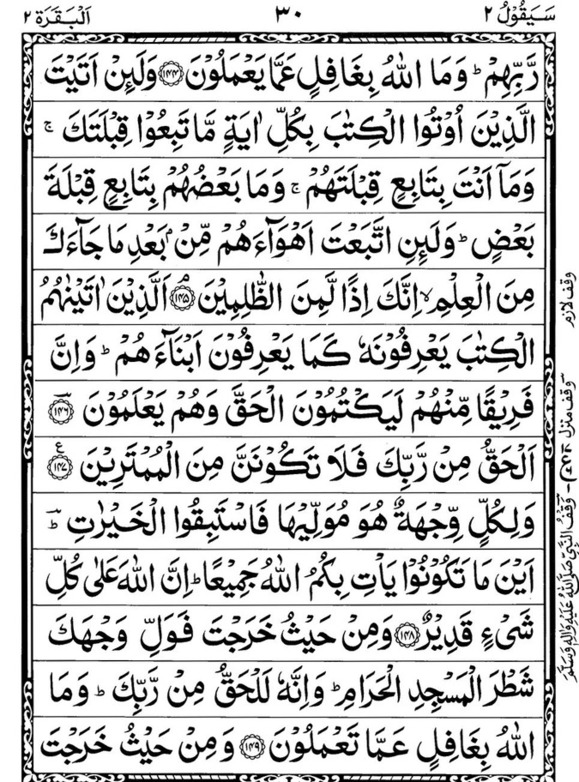 سَيَقُوۡلُ ٢
٣٠
اَلۡبَقَرَة ٢
رَّبِّهِمۡ ؕ وَمَا اللّٰهُ بِغَافِلٍ عَمَّا يَعۡمَلُوۡنَ ﴿۱۴۴﴾ وَلَٮِٕنۡ اَتَيۡتَ
الَّذِيۡنَ اُوۡتُوا الۡكِتٰبَ بِكُلِّ اٰيَةٍ مَّا تَبِعُوۡا قِبۡلَتَكَ ۚ
وَمَاۤ اَنۡتَ بِتَابِعٍ قِبۡلَتَهُمۡ ۚ وَمَا بَعۡضُهُمۡ بِتَابِعٍ قِبۡلَةَ
بَعۡضٍ ؕ وَلَٮِٕنِ اتَّبَعۡتَ اَهۡوَآءَهُمۡ مِّنۡۢ بَعۡدِ مَا جَآءَكَ
مِنَ الۡعِلۡمِ ۙ اِنَّكَ اِذًا لَّمِنَ الظّٰلِمِيۡنَ ﴿۱۴۵﴾ۘ اَلَّذِيۡنَ اٰتَيۡنٰهُمُ
الۡكِتٰبَ يَعۡرِفُوۡنَهٗ كَمَا يَعۡرِفُوۡنَ اَبۡنَآءَهُمۡ ؕ وَاِنَّ
فَرِيۡقًا مِّنۡهُمۡ لَيَكۡتُمُوۡنَ الۡحَقَّ وَهُمۡ يَعۡلَمُوۡنَ ﴿۱۴۶﴾
اَلۡحَقُّ مِنۡ رَّبِّكَ فَلَا تَكُوۡنَنَّ مِنَ الۡمُمۡتَرِيۡنَ ﴿۱۴۷﴾ ع
وَلِكُلٍّ وِّجۡهَةٌ هُوَ مُوَلِّيۡهَا فَاسۡتَبِقُوا الۡخَيۡرٰتِ ؕ
اَيۡنَ مَا تَكُوۡنُوۡا يَاۡتِ بِكُمُ اللّٰهُ جَمِيۡعًا ؕ اِنَّ اللّٰهَ عَلٰى كُلِّ
شَىۡءٍ قَدِيۡرٌ ﴿۱۴۸﴾ وَمِنۡ حَيۡثُ خَرَجۡتَ فَوَلِّ وَجۡهَكَ
شَطۡرَ الۡمَسۡجِدِ الۡحَرَامِ ؕ وَاِنَّهٗ لَلۡحَقُّ مِنۡ رَّبِّكَ ؕ وَمَا
اللّٰهُ بِغَافِلٍ عَمَّا تَعۡمَلُوۡنَ ﴿۱۴۹﴾ وَمِنۡ حَيۡثُ خَرَجۡتَ
وقف لازم
وقف منزل
وَقۡفُ النَّبِيِّ صَلَّى اللّٰهُ عَلَيۡهِ وَاٰلِهٖ وَسَلَّمَ